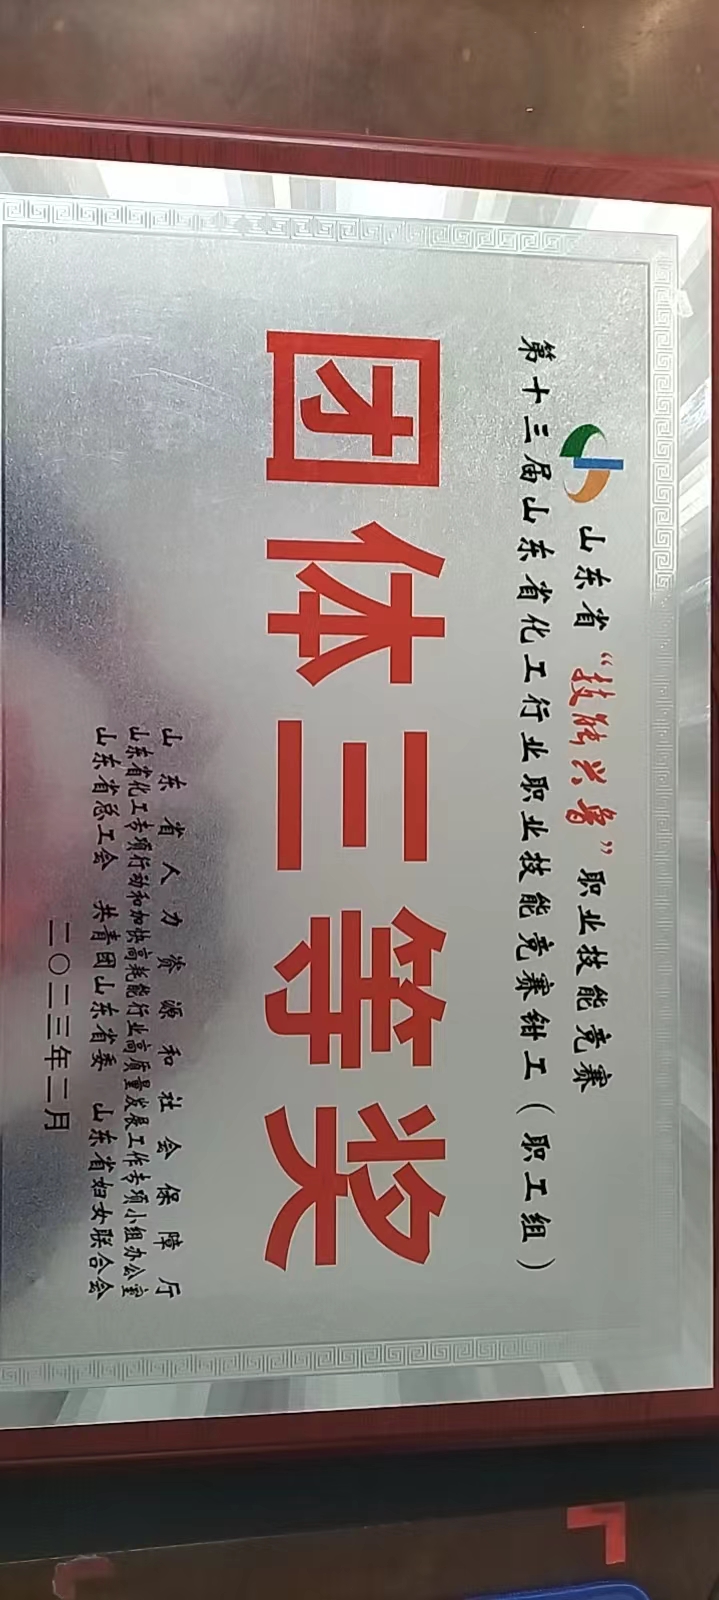 山东省“技能兴鲁”职业技能竞赛
第十三届山东省化工行业职业技能竞赛钳工（职工组）
团体三等奖
山东省人力资源和社会保障厅
山东省化工专项行动和加快高耗能行业高质量发展工作专项小组办公室
山东省总工会 共青团山东省委 山东省妇女联合会
二〇二三年二月